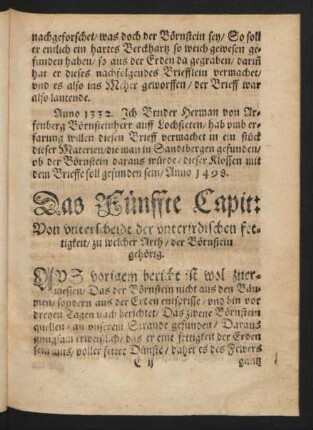 nachgeforschet/ was doch der Börnstein sey/ So soll
er entlich ein hartes Berckhartz so weich gewesen ge-
funden haben/ so aus der Erden da gegraben/ darin̄
hat er dieses nachfolgendes Briefflein vermachet/
vnd es also ins Meher geworffen/ der Brieff war
also lautende.
Anno 1332. Ich Bruder Herman von Ar-
fenberg Börnsteinherr auff Lochsteten/ hab vmb er-
farung willen diesen Brieff vermachet in ein stück
dieser Materien/ die man in Sandtbergen gefunden/
ob der Börnstein daraus würde/ dieser Klossen mit
dem Brieffe soll gefunden sein/ Anno 1498.
Das Fünffte Capit:
Von vnterscheidt der vnterirdischen fet-
tigkeit/ zu welcher Arth/ der Börnstein
gehörig.
AVS vorigem bericht ist wol zuer-
messen/ Das der Börnstein nicht aus den Bäu-
men/ sondern aus der Erden entsprisse/ vnd bin vor
dreyen Tagen nach berichtet/ Das zwene Börnstein
quellen/ an vnserem Strande gefunden/ Daraus
gnugsam erweißlich/ das er eine fettigkeit der Erden
sein mus/ voller fetter Dünste/ daher es des Fewers
C ij
gantz